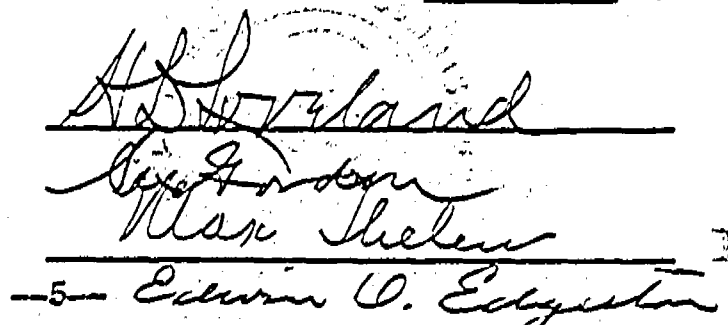 H D Loveland
Alex Gordon
Max Thelen
--5-- Edwin O. Edgerton